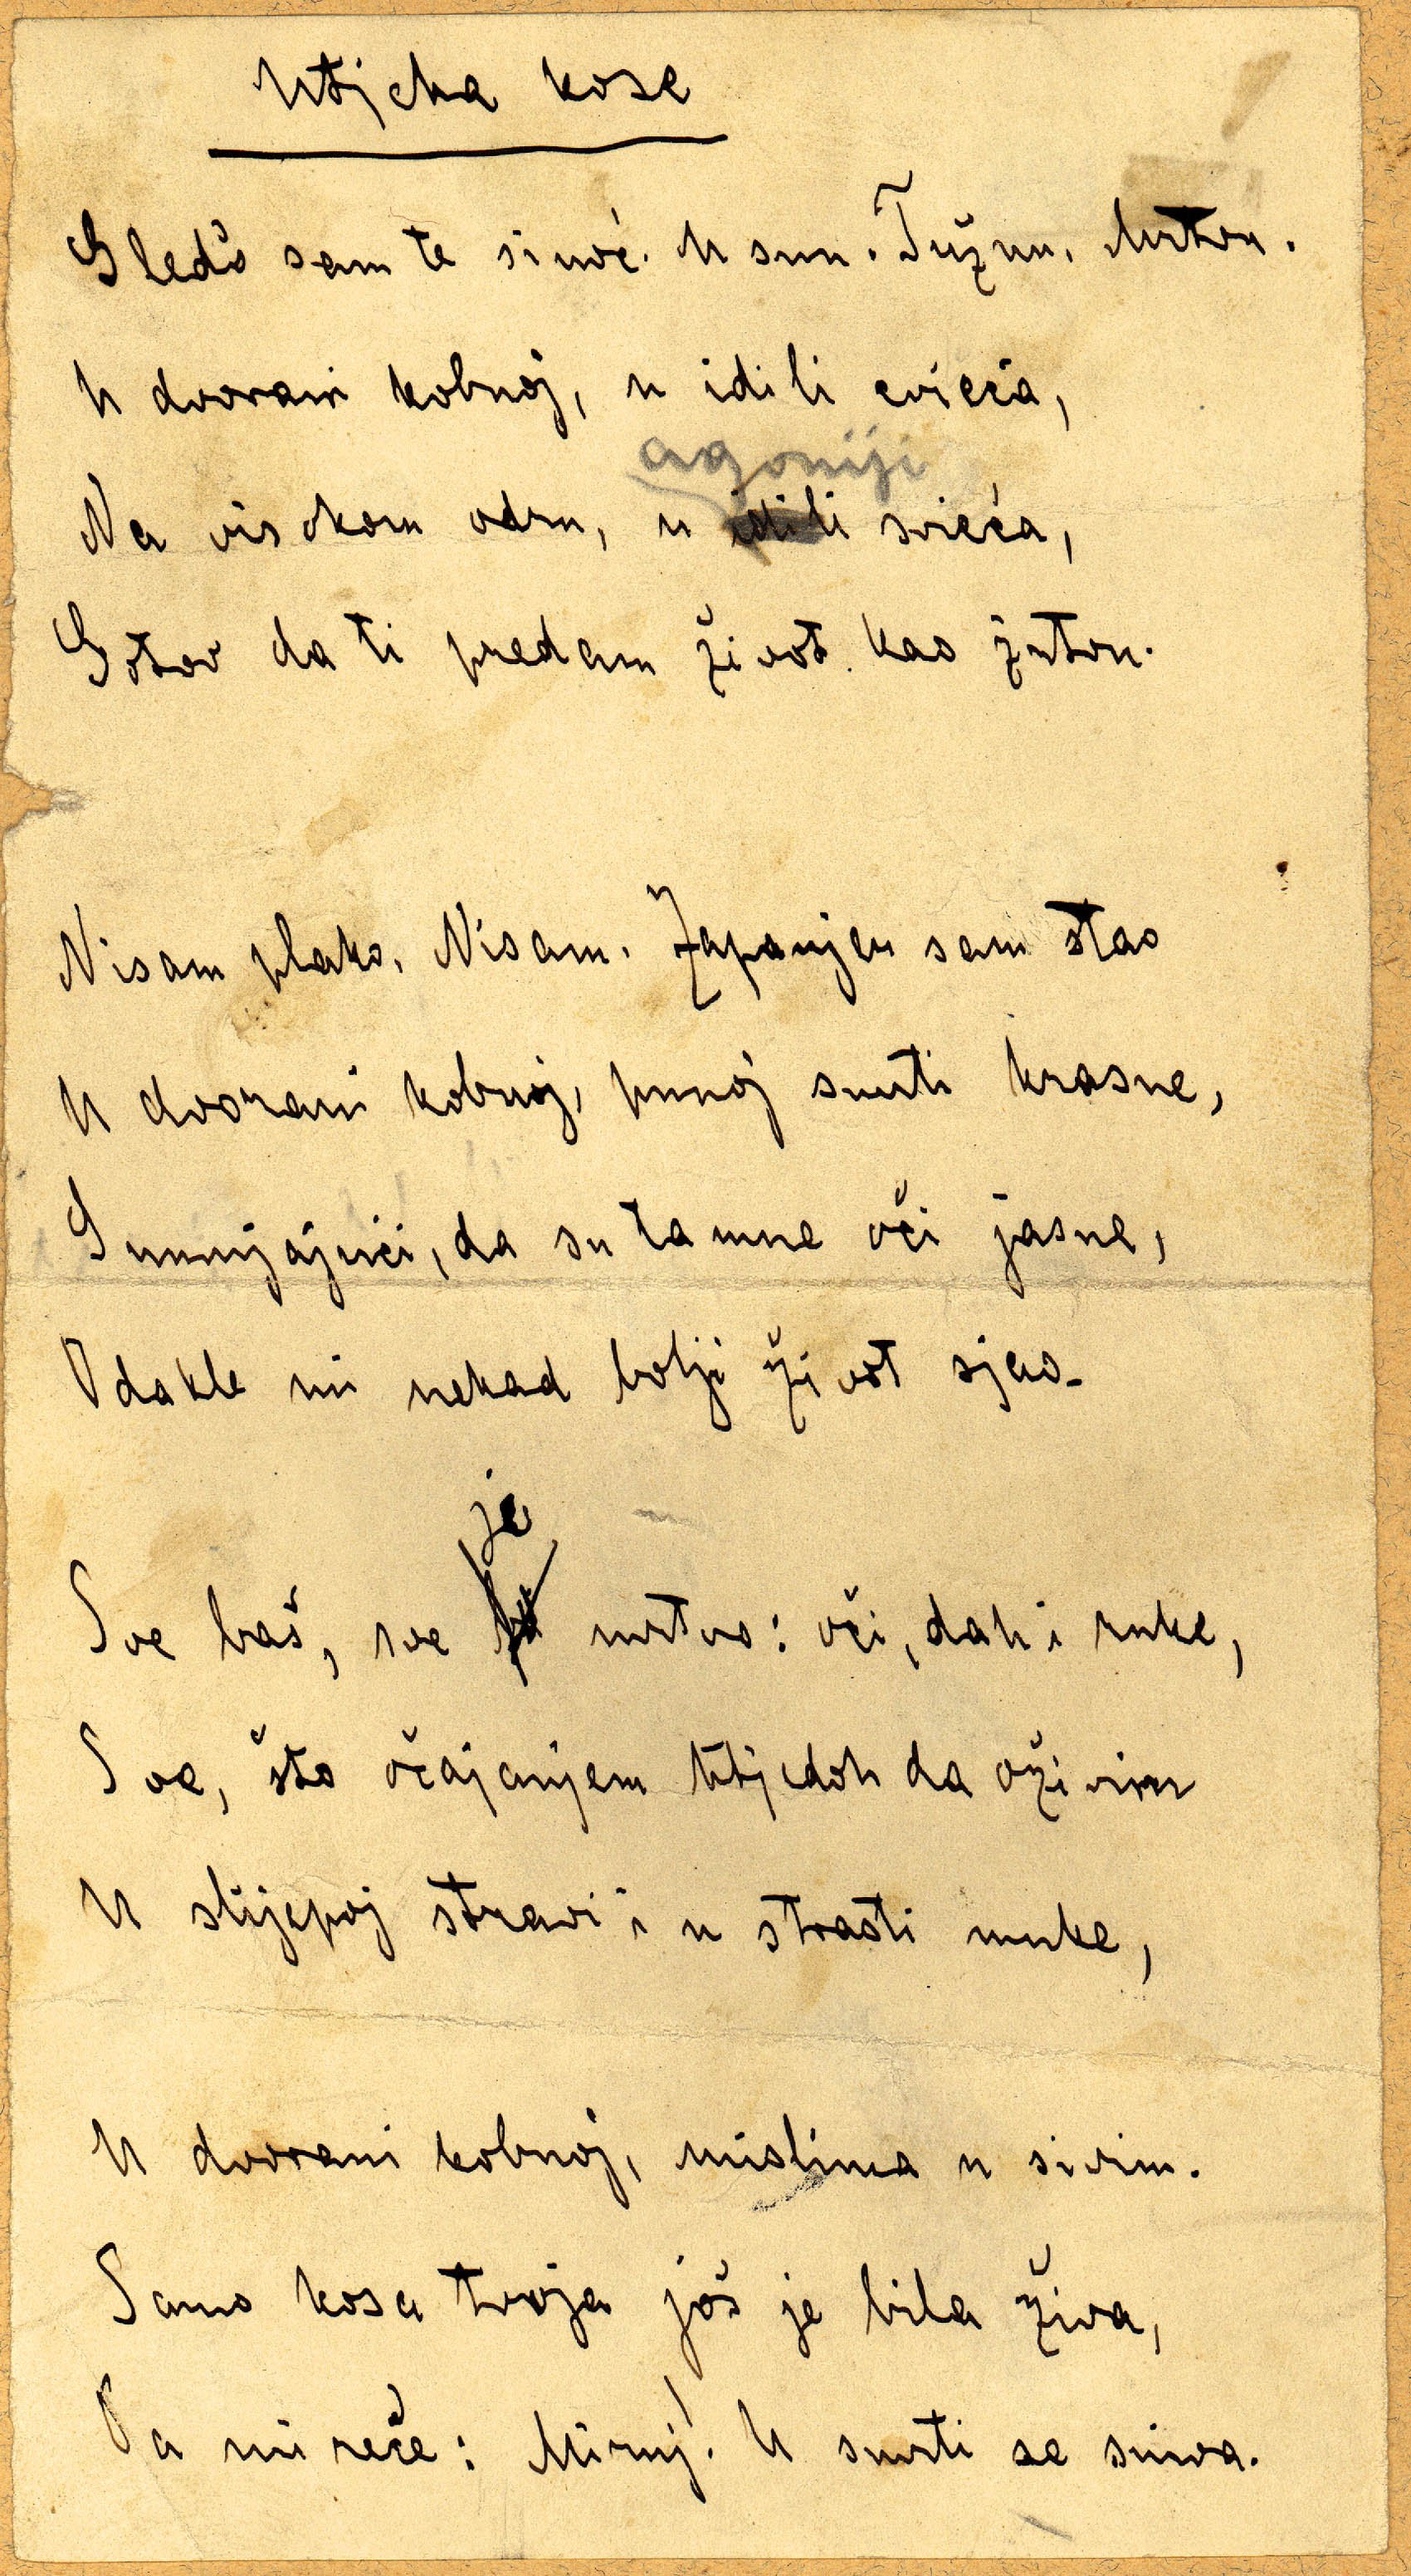 Utjeha kose
Gledo sam te sinoć. U snu. Tužnu. Mrtvu.
U dvorani kobnoj, u idili cvieća,
agoniji
Na visokom odru, u idili svieća,
Gotov da ti predam život kao žrtvu.
Nisam plako. Nisam. Zapanjen sam stao
U dvorani kobnoj, punoj smrti krasne,
Sumnjajući, da su tamne oči jasne,
Odakle mi nekad bolji život sjao.
je
Sve baš, sve mrtvo: oči, dah i ruke,
Sve, što očajanjem htjedoh da oživim
U slijepoj stravi i u strasti muke,
U dvorani kobnoj, mislima u sivim.
Samo kosa tvoja još je bila živa,
Pa mi reče: Miruj! U smrti se sniva.